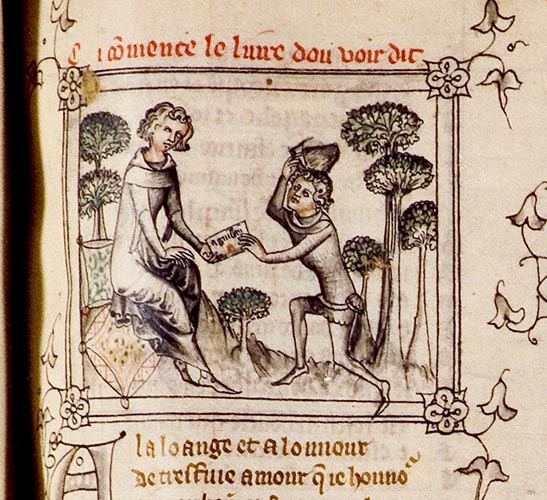 Ci cõmence le liure dou voir dit
A guillem
A la loange et a lonnour
De tres fine amour q̃ ie honno᷑